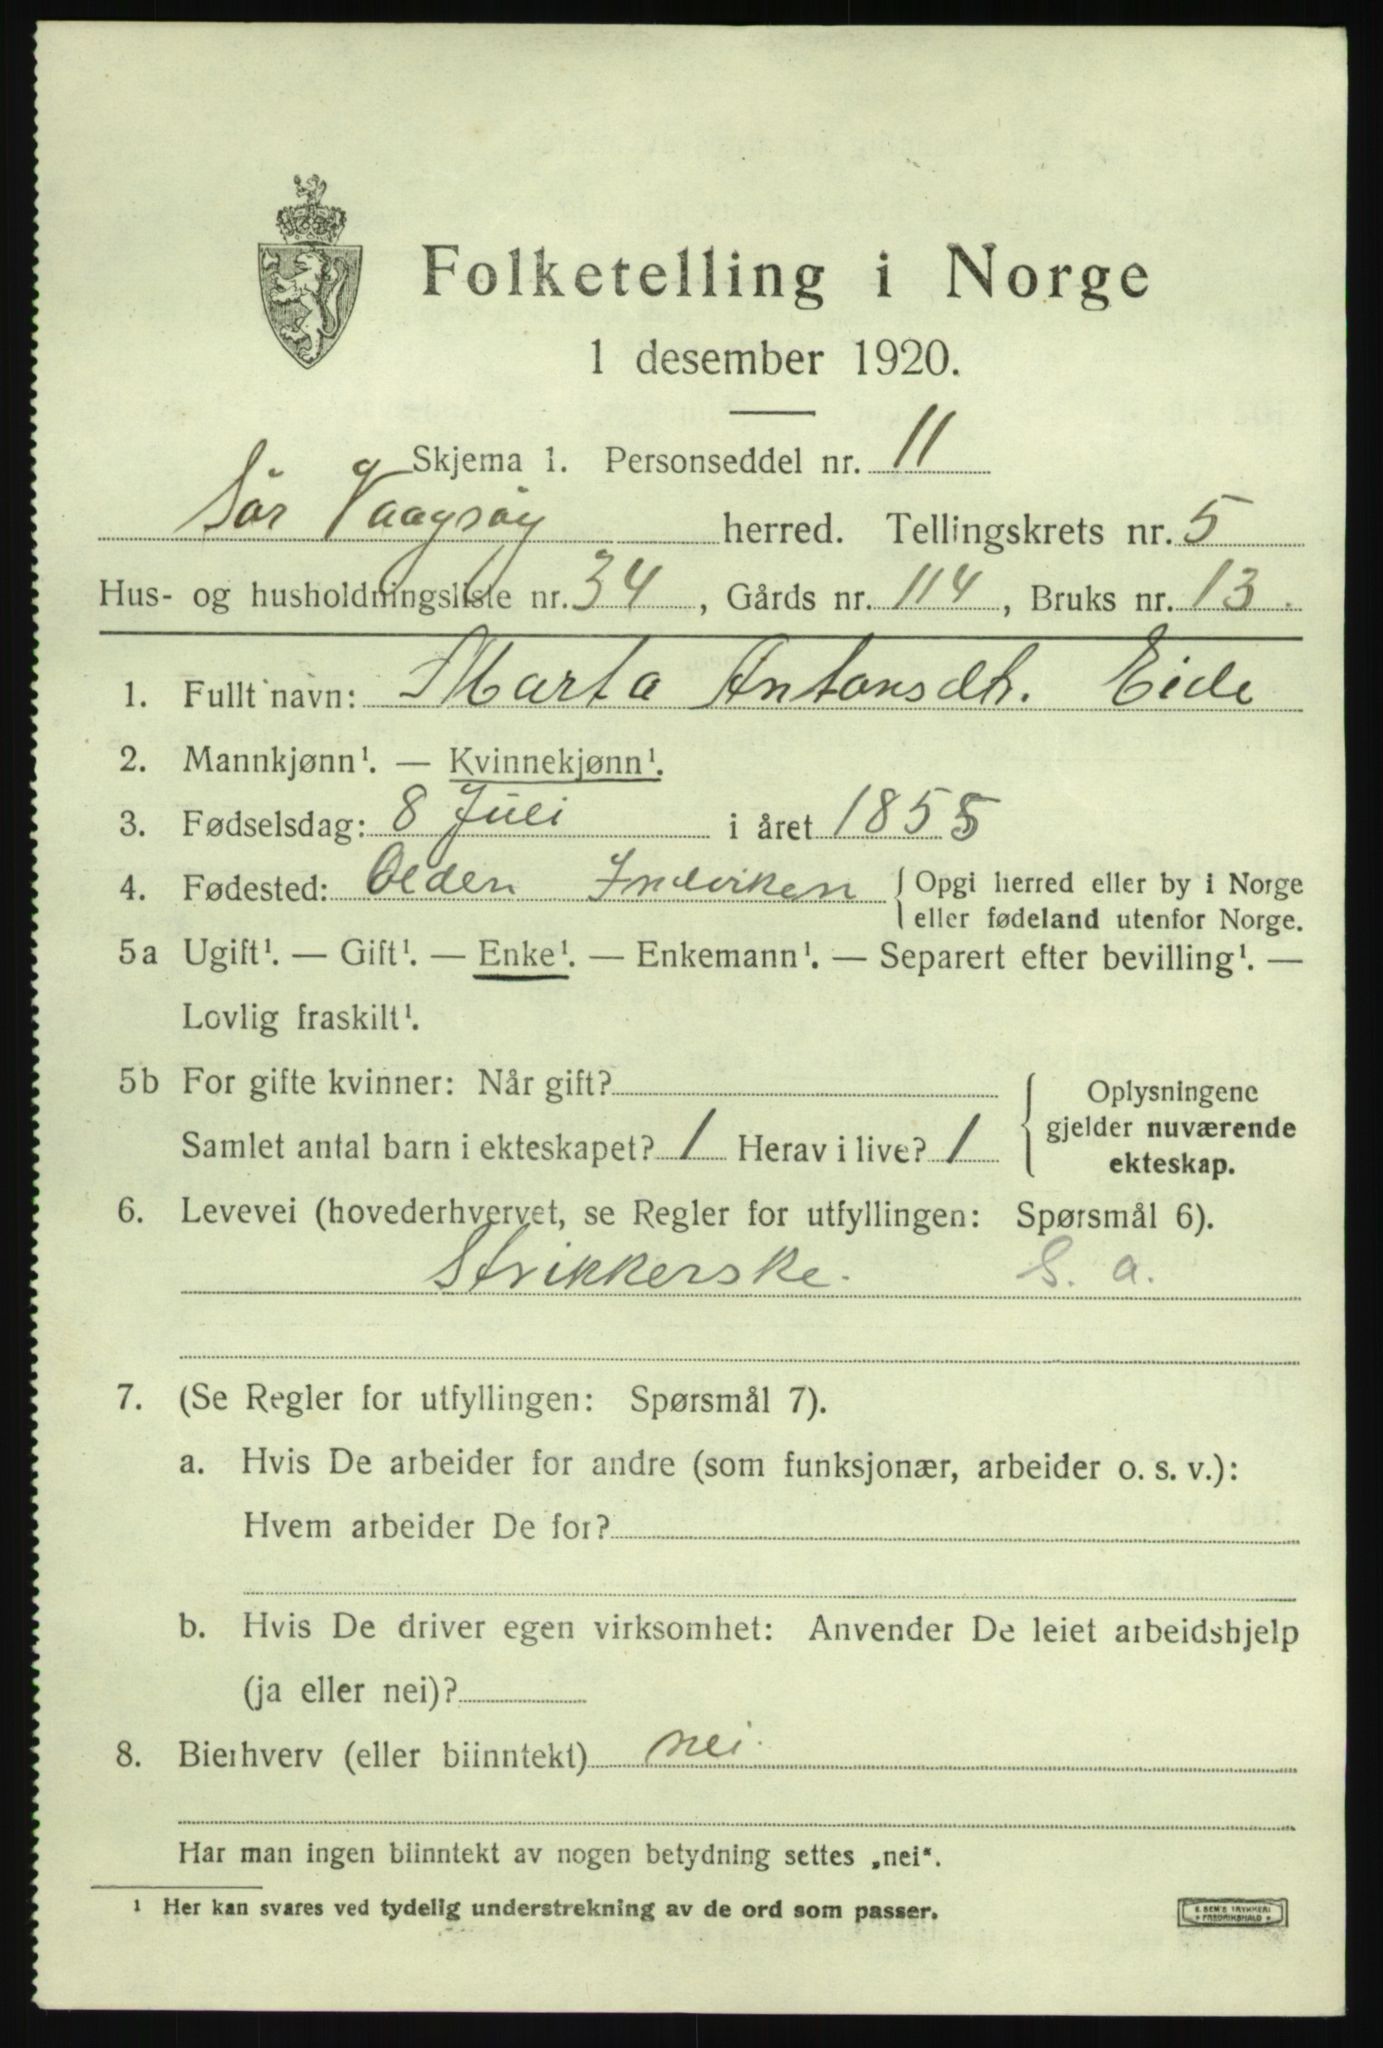 Folketelling i Norge
1 desember 1920.
Skjema 1. Personseddel nr. 11
Sør Vaagsøy herred. Tellingskrets nr. 5
Hus- og husholdningsliste nr. 34, Gårds nr. 114, Bruks nr. 13.
1. Fullt navn: Marta Antonsdh. Eide
2. Mannkjønn¹. — Kvinnekjønn¹.
3. Fødselsdag: 8 Juli i året 1855
4. Fødested: Olden Indviken { Opgi herred eller by i Norge
eller fødeland utenfor Norge.
5a Ugift¹. — Gift¹. — Enke¹. — Enkemann¹. — Separert efter bevilling¹. —
Lovlig fraskilt¹.
5b For gifte kvinner: Når gift?
Samlet antal barn i ekteskapet? 1 Herav i live? 1
{ Oplysningene
gjelder nuværende
ekteskap.
6. Levevei (hovederhvervet, se Regler for utfyllingen: Spørsmål 6).
Strikkerske. S. a.
7. (Se Regler for utfyllingen: Spørsmål 7).
a. Hvis De arbeider for andre (som funksjonær, arbeider o. s. v.):
Hvem arbeider De for?
b. Hvis De driver egen virksomhet: Anvender De leiet arbeidshjelp
(ja eller nei)?
8. Bierhverv (eller biinntekt) nei.
Har man ingen biinntekt av nogen betydning settes „nei“.
¹ Her kan svares ved tydelig understrekning av de ord som passer.
E. SEM'S TRYKKERI
FREDRIKSHALD